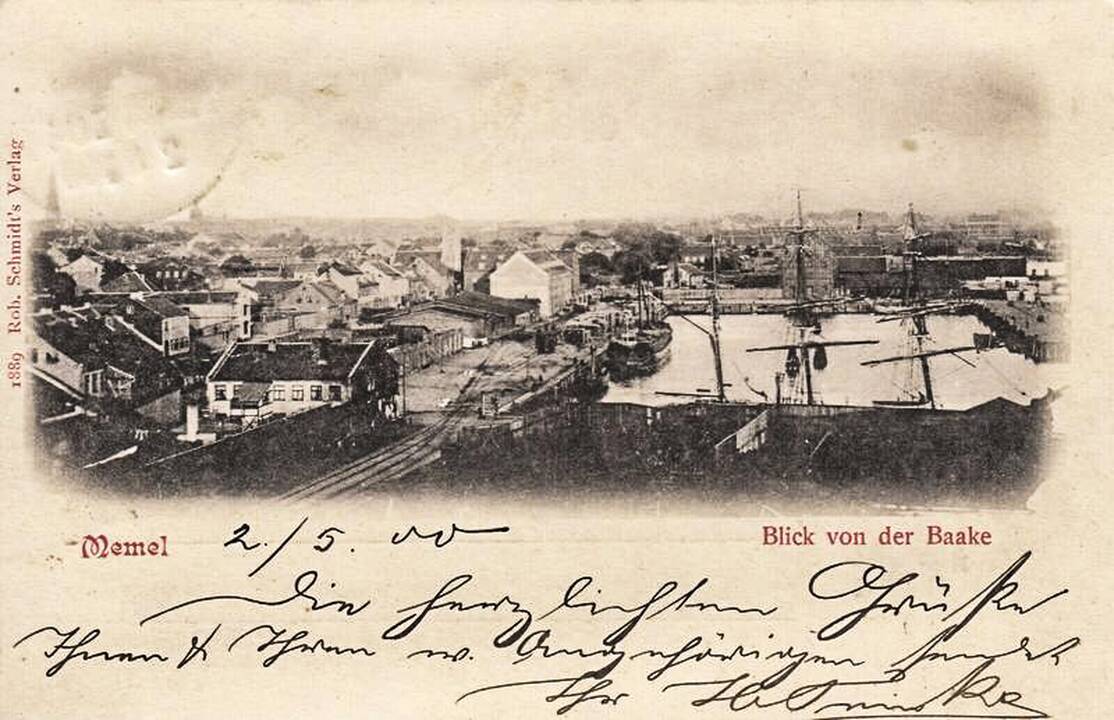 1889 Rob. Schmidt's Verlag
Memel 2./5. 00
Blick von der Baake
Die herzlichsten Grüße
Ihnen & Ihren w. Angehörigen sendet
Ihr